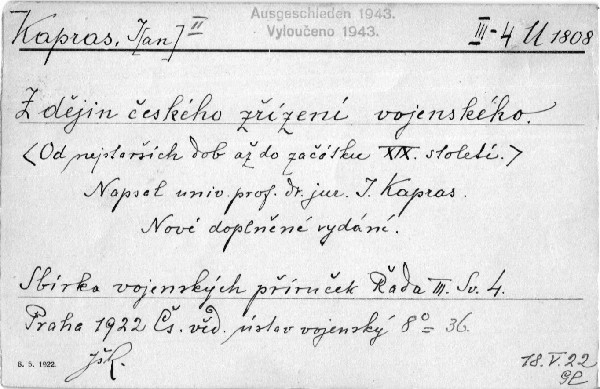 Ausgeschieden 1943.
Vyloučeno 1943.
Kapras, J[an] II III-4 U 1808
Z dějin českého zřízení vojenského.
<Od nejstarších dob až do začátku XIX. století.>
Napsal univ. prof. dr. jur. J. Kapras.
Nové doplněné vydání.
Sbírka vojenských příruček Řada III. Sv. 4.
Praha 1922 Čs. věd. ústav vojenský 8° = 36.
8. 5. 1922.
18.V.22